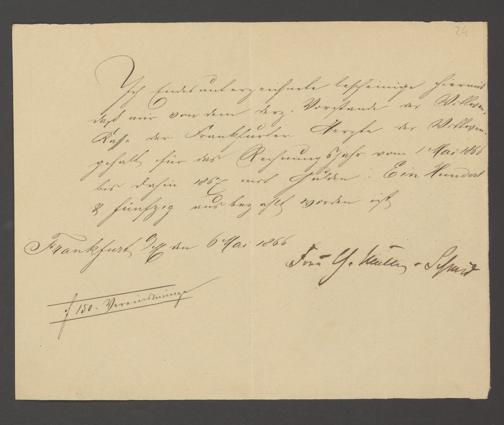 24
Ich Endesunterzeichnete bescheinige hiermit
daß mir von dem derz. Vorstande der Wittwen-
Kasse der Frankfurter Aerzte der Wittwen-
gehalt für das Rechnungsjahr vom 1 Mai 1866
bis dahin 1867 mit Gulden: Ein Hundert
& fünfzig ausbezahlt worden ist
Frankfurt a/M den 6 Mai 1866
Frau Müller-Schmid
f 150.-